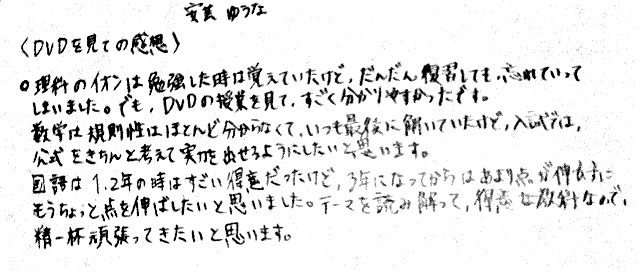 安芸 ゆうな
〈DVDを見ての感想〉
○理科のイオンは勉強した時は覚えていたけど、だんだん復習しても、忘れていって
しまいました。でも、DVDの授業を見て、すごく分かりやすかったです。
数学は規則性はほとんど分からなくて、いつも最後に解いていたけど、入試では、
公式をきちんと考えて実力を出せるようにしたいと思います。
国語は1.2年の時はすごい得意だったけど、3年になってからはあまり点が伸びずに
もうちょっと点を伸ばしたいと思いました。テーマを読み解って、得意な教科なので、
精一杯頑張ってきたいと思います。